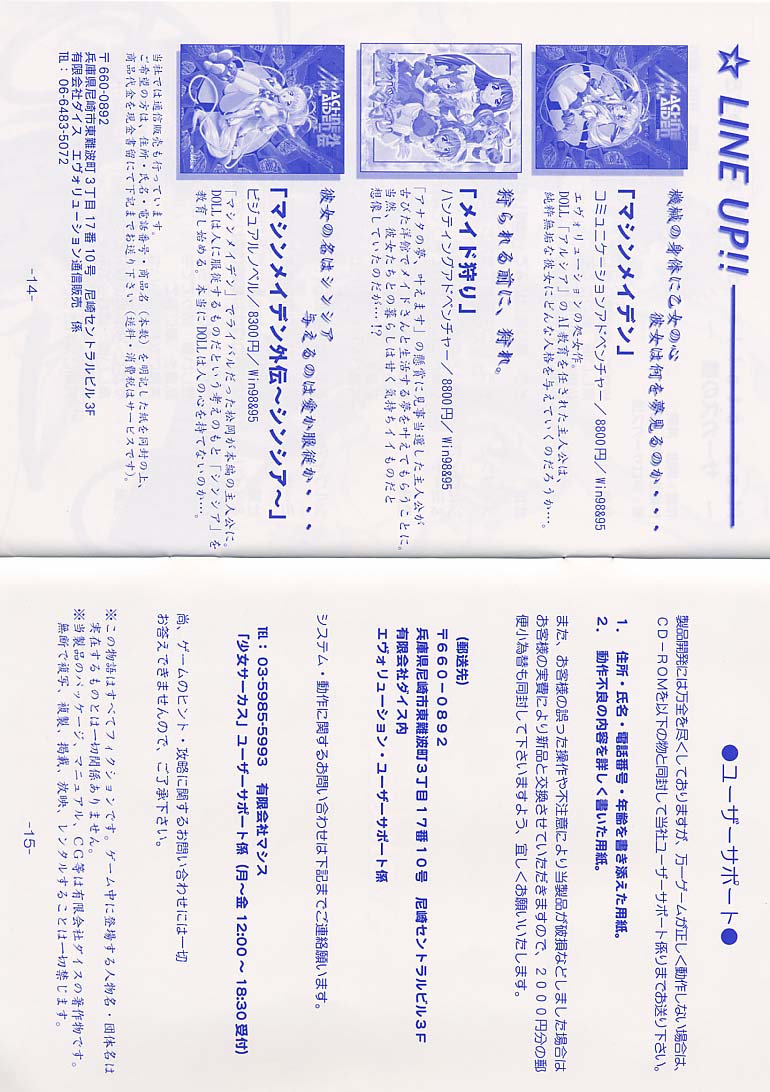 ☆ LINE UP!!
機械の身体に乙女の心
彼女は何を夢見るのか・・・
「マシンメイデン」
コミュニケーションアドベンチャー／8800円／Win98&95
エヴォリューションの処女作。
DOLL「アルシア」のAI教育を任された主人公は、
純粋無垢な彼女にどんな人格を与えていくのだろうか…。
MACHINE MAIDEN
狩られる前に、狩れ。
「メイド狩り」
ハンティングアドベンチャー／8800円／Win98&95
「アナタの夢、叶えます」の懸賞に見事当選した主人公が
古びた洋館でメイドさんと生活する夢を叶えてもらうことに。
当然、彼女たちとの暮らしはせく気持ちイイものだと
想像していたのだが…!?
彼女の名はシンシア
与えるのは愛か服従か・・・
「マシンメイデン外伝～シンシア～」
ビジュアルノベル／8300円／Win98&95
「マシンメイデン」でライバルだった松岡が本編の主人公に。
DOLLは人に服従するものだという考えのもと「シンシア」を
教育し始める。本当にDOLLは人の心を持てないのか…。
MACHINE MAIDEN 外伝
当社では通信販売も行っています。
ご希望の方は、住所・氏名・電話番号・商品名（本数）を明記した紙を同封の上、
商品代金を現金書留にて下記までお送り下さい（送料・消費税はサービスです）。
〒660-0892
兵庫県尼崎市東難波町3丁目17番10号　尼崎セントラルビル3F
有限会社ダイス　エヴォリューション通信販売　係
TEL：06-6483-5072
-14-
●ユーザーサポート●
製品開発には万全を尽くしておりますが、万一ゲームが正しく動作しない場合は、
CD-ROMを以下の物と同封して当社ユーザーサポート係りまでお送り下さい。
1.　住所・氏名・電話番号・年齢を書き添えた用紙。
2.　動作不良の内容を詳しく書いた用紙。
また、お客様の誤った操作や不注意により当製品が破損などしました場合は
お客様の実費により新品と交換させていただきますので、2000円分の郵
便小為替も同封して下さいますよう、宜しくお願いいたします。
(郵送先)
〒660-0892
兵庫県尼崎市東難波町3丁目17番10号　尼崎セントラルビル3F
有限会社ダイス内
エヴォリューション・ユーザーサポート係
システム・動作に関するお問い合わせは下記までご連絡願います。
TEL：03-5985-5993　有限会社マシス
「少女サーカス」ユーザーサポート係（月～金 12:00～18:30受付）
尚、ゲームのヒント・攻略に関するお問い合わせには一切
お答えできませんので、ご了承下さい。
※この物語はすべてフィクションです。ゲーム中に登場する人物名・団体名は
実在するものとは一切関係ありません。
※当製品のパッケージ、マニュアル、CG等は有限会社ダイスの著作物です。
無断で複写、複製、掲載、放映、レンタルすることは一切禁じます。
-15-